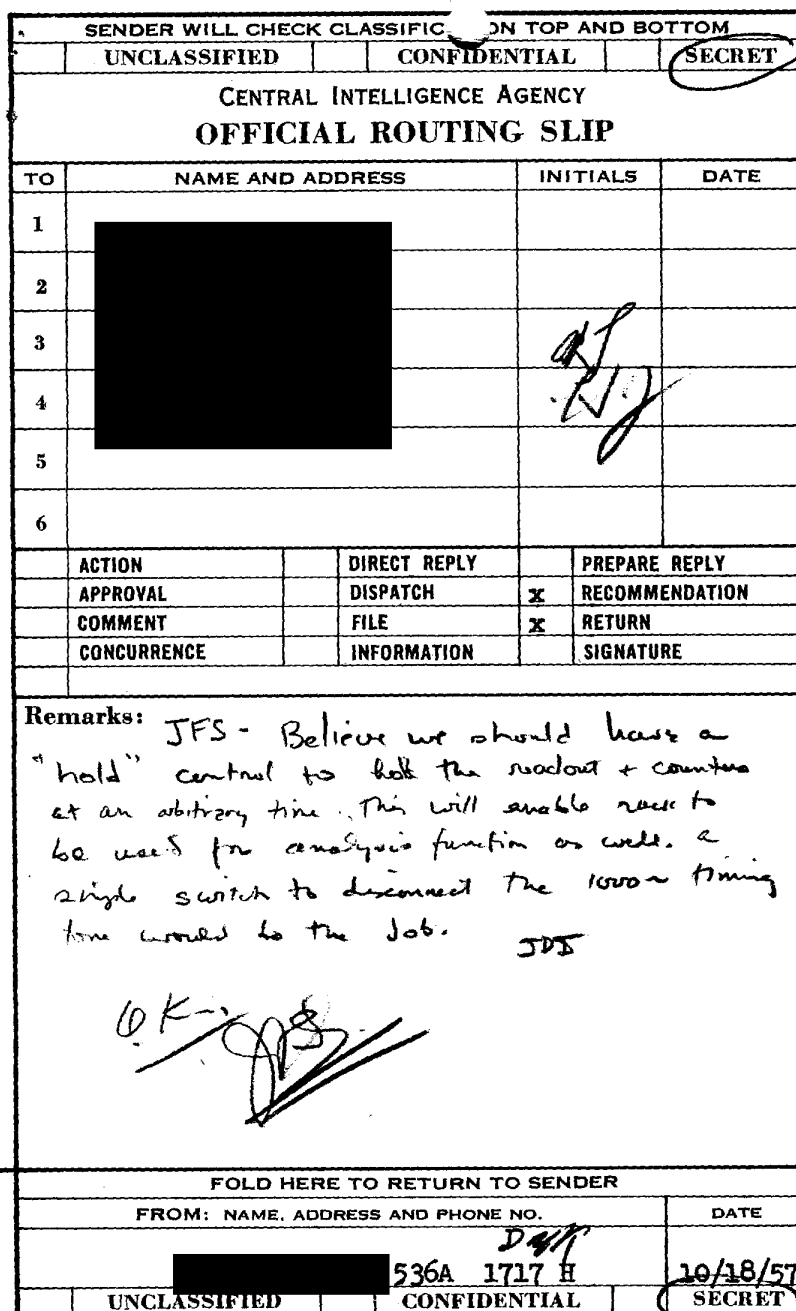 SENDER WILL CHECK CLASSIFIC ON TOP AND BOTTOM
UNCLASSIFIED CONFIDENTIAL SECRET
CENTRAL INTELLIGENCE AGENCY
OFFICIAL ROUTING SLIP
TO NAME AND ADDRESS INITIALS DATE
1
2
3
4
5
6
ACTION DIRECT REPLY PREPARE REPLY
APPROVAL DISPATCH x RECOMMENDATION
COMMENT FILE x RETURN
CONCURRENCE INFORMATION SIGNATURE
Remarks: JFS - Believe we should have a
"hold" control to hold the readout + counters
at an arbitrary time. This will enable rack to
be used for analysis function as well. a
single switch to disconnect the 1000~ timing
tone would do the job. JDI
O.K.
FOLD HERE TO RETURN TO SENDER
FROM: NAME, ADDRESS AND PHONE NO. DATE
536A 1717 H 10/18/57
UNCLASSIFIED CONFIDENTIAL SECRET